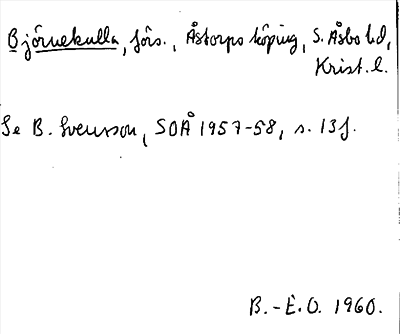 Björnekulla, förs., Åstorps köping, S. Åsbo hd,
Krist. l.
Se B. Svensson, SOÅ 1957-58, s. 13f.
B.-E.O. 1960.